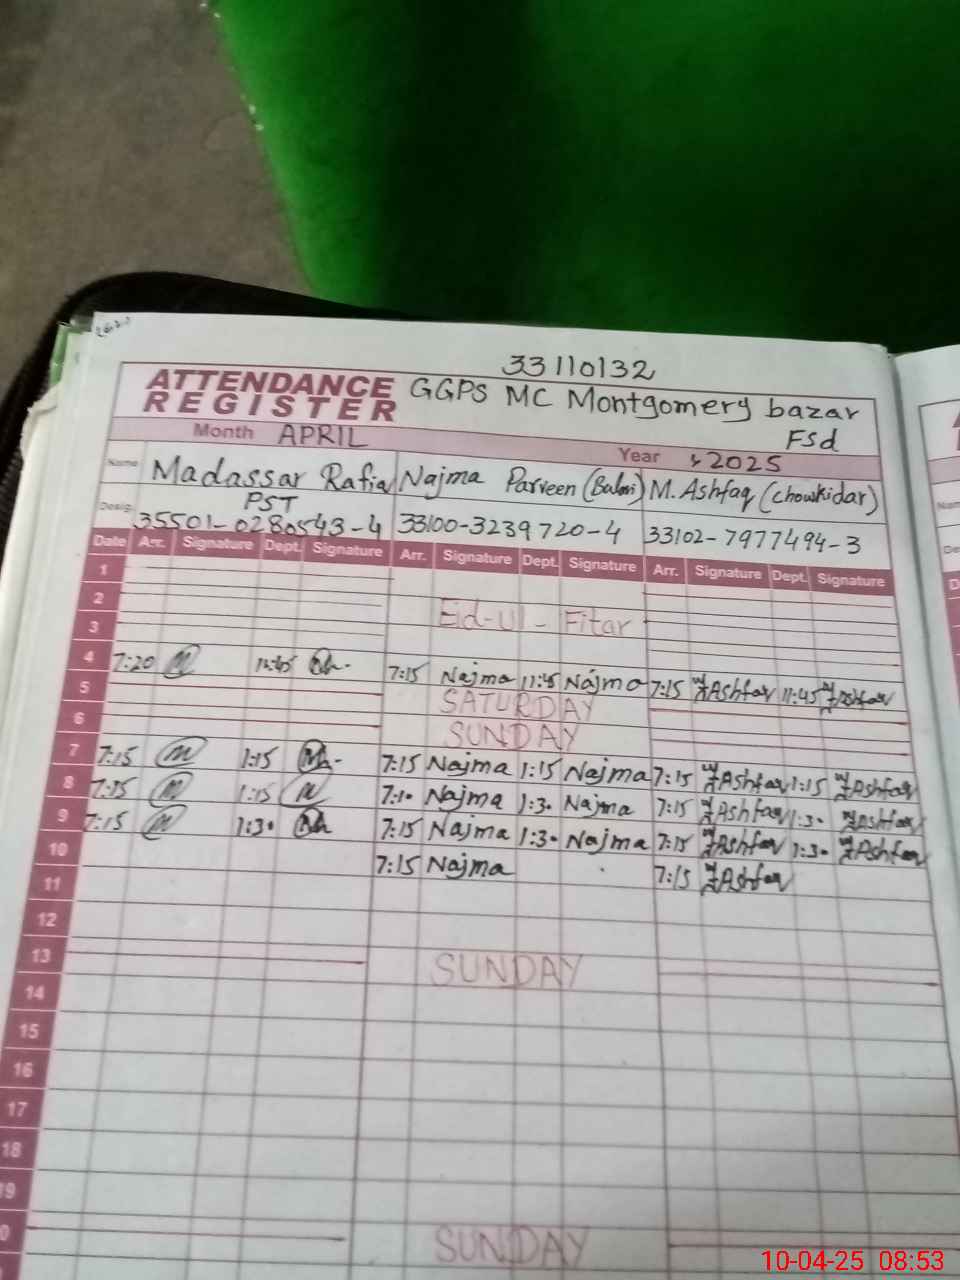 33110132
ATTENDANCE REGISTER GGPS MC Montgomery bazar
Fsd
Month APRIL Year 2025
Name Madassar Rafia Najma Parveen (Balmi) M. Ashfaq (chowkidar)
Desig. PST
35501-0280543-4 33100-3239720-4 33102-7977494-3
Date Arr. Signature Dept. Signature Arr. Signature Dept. Signature Arr. Signature Dept. Signature
1
2
3 Eid-Ul-Fitar
4 7:20 11:45 7:15 Najma 11:45 Najma 7:15 Ashfaq 11:45 Ashfaq
5 SATURDAY
6 SUNDAY
7 7:15 1:15 7:15 Najma 1:15 Najma 7:15 Ashfaq 1:15 Ashfaq
8 7:15 1:15 7:10 Najma 1:30 Najma 7:15 Ashfaq 1:30 Ashfaq
9 7:15 1:30 7:15 Najma 1:30 Najma 7:15 Ashfaq 1:30 Ashfaq
10 7:15 Najma 7:15 Ashfaq
11
12
13 SUNDAY
14
15
16
17
18
19
SUNDAY
10-04-25 08:53